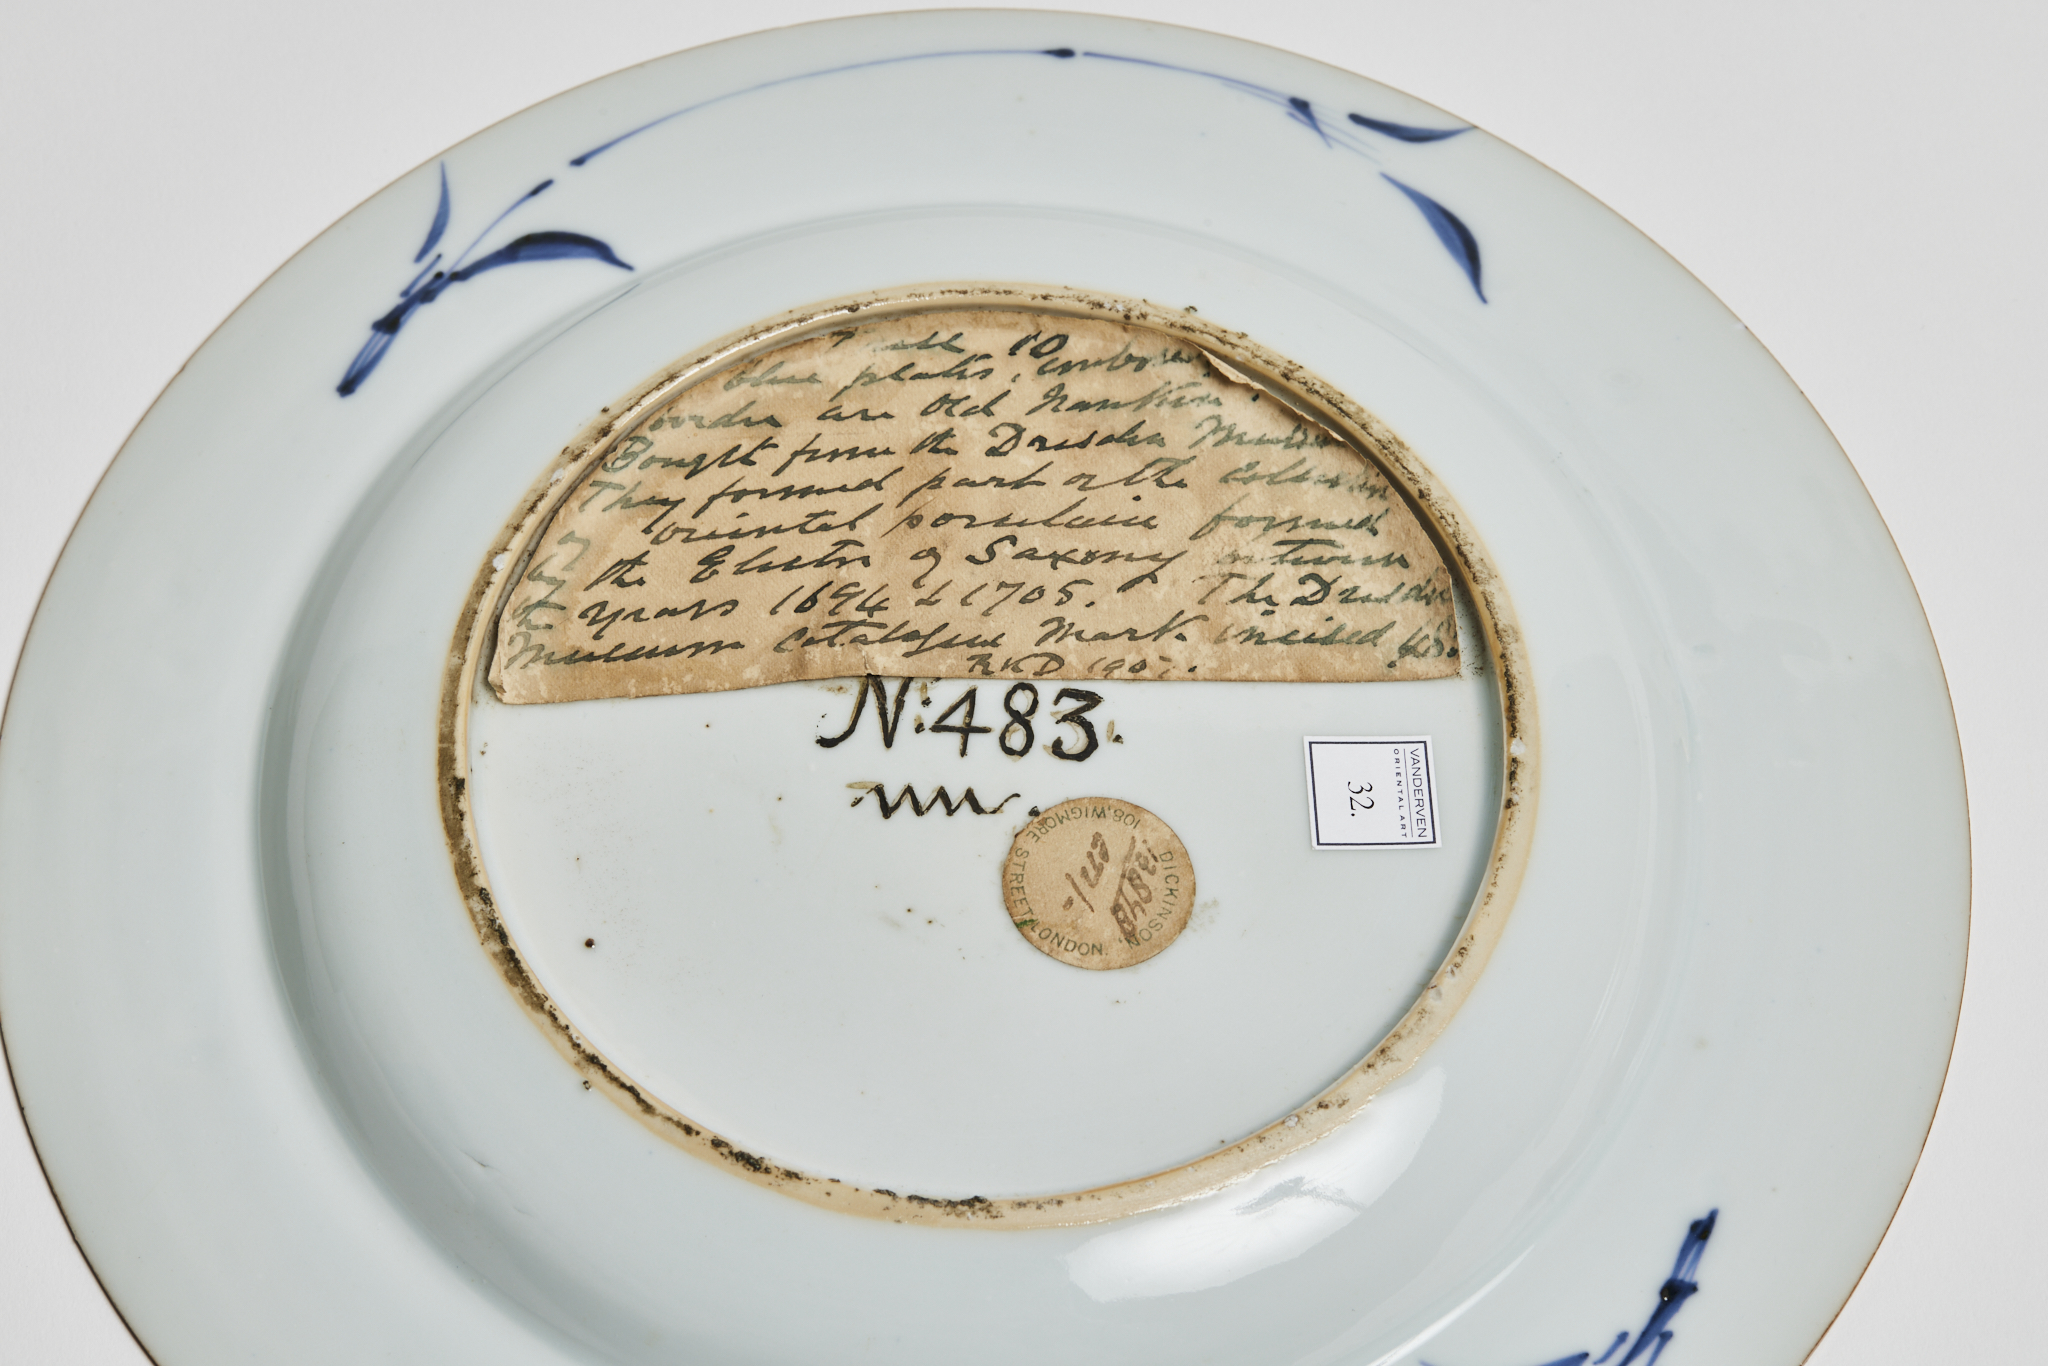 10
blue plates, embossed
border are old Nankin.
Bought from the Dresden Museum
They formed part of the collection
of oriental porcelain formed
by the Elector of Saxony between
the years 1694 & 1705. The Dresden
Museum catalogue Mark incised 483.
RKD 1907.
N:483.
DICKINSON,
108, WIGMORE STREET, LONDON.
VANDERVEN
ORIENTAL ART
32.